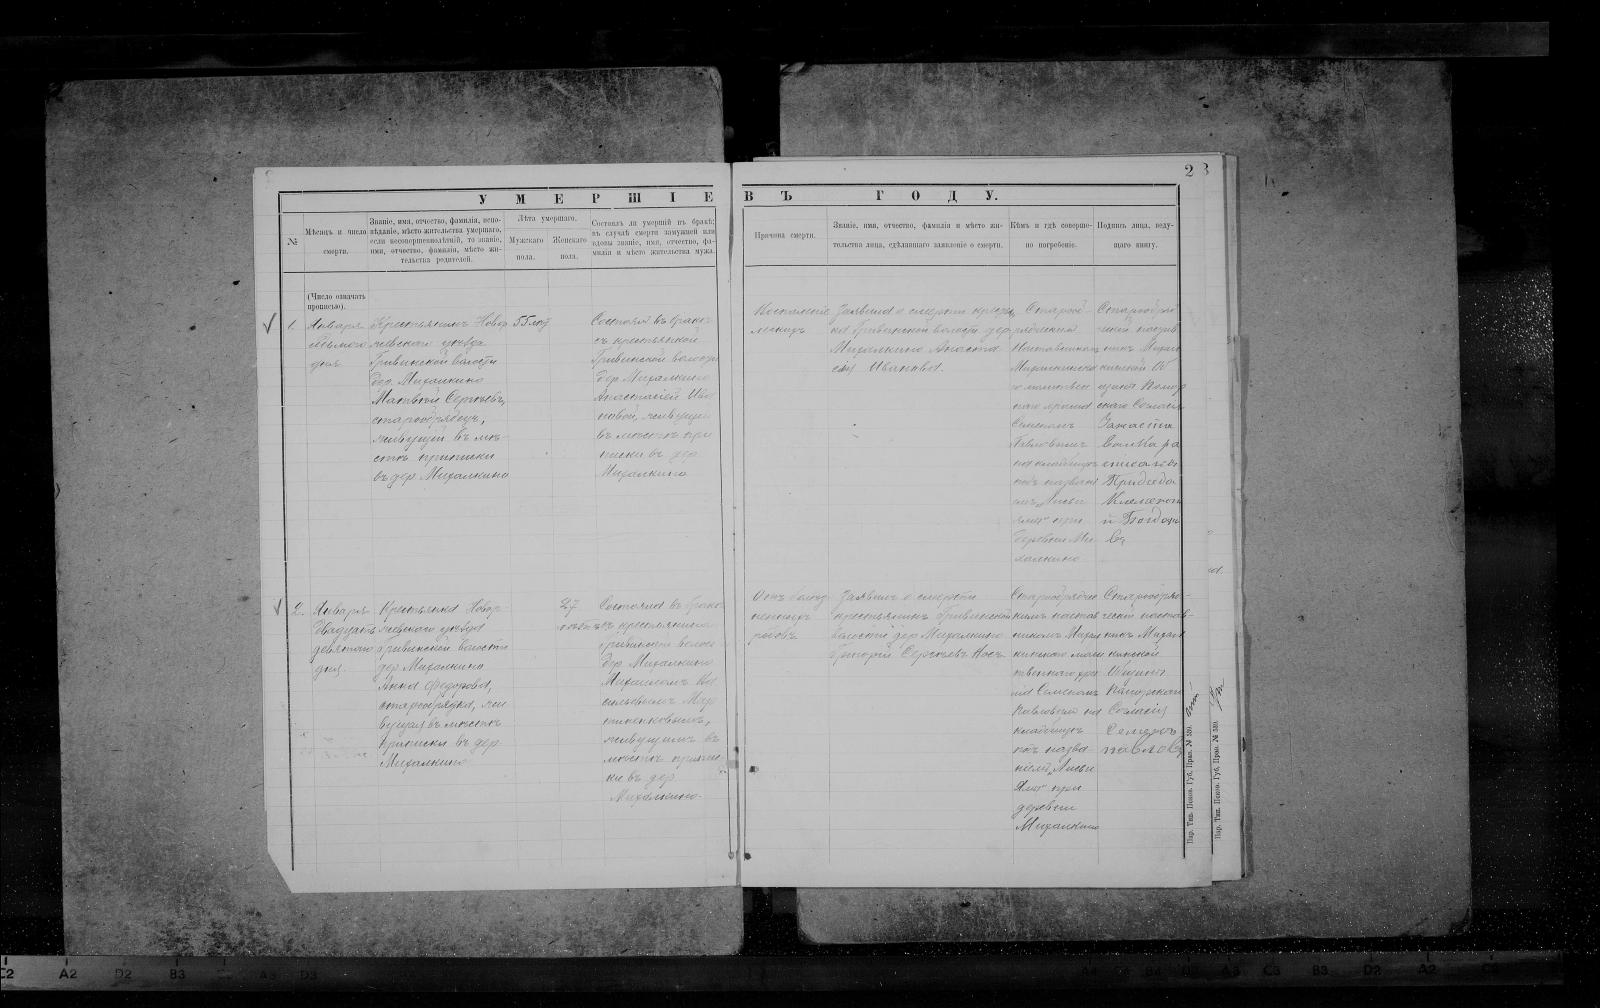 2
3
УМЕРШІЕ
ВЪ ГОДУ.
№
Мѣсяцъ и число
смерти.
Званіе, имя, отчество, фамилія, испо-
вѣданіе, мѣсто жительства умершаго,
если несовершеннолѣтній, то званіе,
имя, отчество, фамилія, мѣсто жи-
тельства родителей.
Лѣта умершаго.
Мужскаго
пола.
Женскаго
пола.
Состоялъ ли умершій въ бракѣ;
въ случаѣ смерти замужней или
вдовы званіе, имя, отчество, фа-
милія и мѣсто жительства мужа.
Причина смерти.
Званіе, имя, отчество, фамилія и мѣсто жи-
тельства лица, сдѣлавшаго заявленіе о смерти.
Кѣмъ и гдѣ соверше-
но погребеніе.
Подпись лица, веду-
щаго книгу.
(Число означать
прописью).
1.
Января
седьмого
дня
Крестьянинъ Новор
жевскаго уѣзда
Гривинской волости
дер. Михалкино
Матвѣй Сергѣевъ,
старообрядецъ,
живущій въ мѣ-
стѣ приписки
въ дер Михалкино
55 лѣтъ
Состоялъ въ бракѣ
съ крестьянкой
Гривинской волости
дер Михалкино
Анастасіей Ива
новой, живущей
въ мѣстѣ при
писки въ дер
Михалкино
Воспаленіе
легкихъ
Заявила о смерти крестьян
ка Гривинской волости дер
Михалкино Анаста
сія Иванова.
Старооб-
рядческимъ
Наставникомъ
Михалкинскаго
молитвен
наго храма
Семеномъ
Павловымъ
на кладбищѣ
подъ назван
емъ „Лисьи
ямы" при
деревни Ми
халкино
Старообряд
ческій настав
никъ Михал
кинской Об
щины Помор
скаго Согласія
За
писалъ
Богдан
въ
2.
Января
двадцать
девятаго
дня.
Крестьянка Новор
жевскаго уѣзда
Гривинской волости
дер Михалкино
Анна Федорова,
старообрядка, жи
вущая въ мѣстѣ
приписки въ дер
Михалкино
27
лѣтъ
Состояла въ бракѣ
съ крестьяниномъ
Гривинской волос
дер Михалкино
Михаиломъ Ва
сильевымъ
живущимъ въ
мѣстѣ припис
ки въ дер
Михалкино.
Отъ болѣз
ненныхъ
родовъ
Заявилъ о смерти
крестьянинъ Гривинской
волости дер Михалкино
Григорій Сергѣевъ
Старообрядчес
кимъ настав
никомъ Михал
кинскаго моли
твеннаго хра
ма Семеномъ
Павловымъ на
кладбищѣ
подъ назва
ніемъ „Лисьи
Ямы" при
деревни
Михалкино
Старообряд-
ческій настав-
никъ Михал
кинской
Общины
Поморскаго
Согласія
Семенъ
павловъ
Пар. Тип. Псков. Губ. Прав. № 539.
Пар. Тип. Псков. Губ. Прав. № 539.
C2
A2
D2
B3
A3
D3
B4
A3
C3
B3
D2
A2
C2